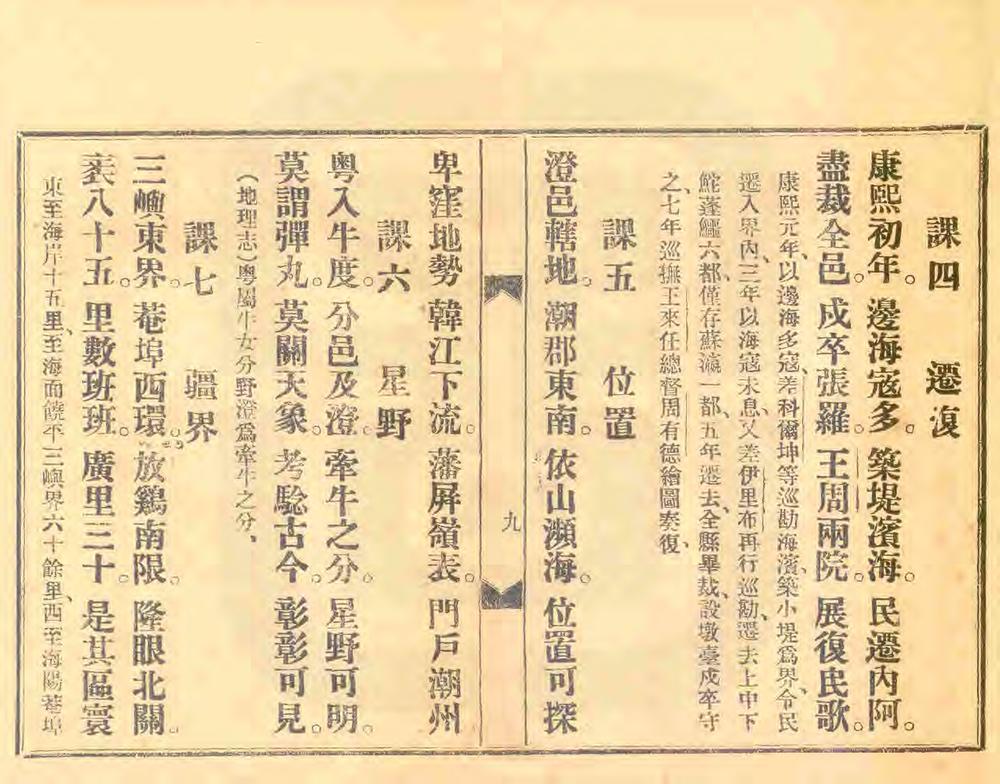 課四　遷復
康熙初年。邊海寇多。築堤濱海。民遷內阿。
盡裁全邑。戍卒張羅。王周兩院。展復民歌。
康熙元年、以邊海多寇、差科爾坤等巡勘海濱、築小堤爲界、令民
遷入界內、三年以海寇未息、又差伊里布再行巡勘、遷去上中下
鮀蓬鱷六都、僅存蘇灣一都、五年遷去、全縣畢裁、設墩臺戍卒守
之、七年巡撫王來任總督周有德繪圖奏復、
課五　位置
澄邑轄地。潮郡東南。依山瀕海。位置可探
九
卑窪地勢　韓江下流。藩屏嶺表。門戶潮州
課六　星野
粵入牛度。分邑及澄。牽牛之分。星野可明。
莫謂彈丸。莫關天象。考騐古今。彰彰可見。
（地理志）粵屬牛女分野澄爲牽牛之分、
課七　疆界
三嶼東界。菴埠西環。放鷄南限。隆眼北關。
袤八十五。里數班班。廣里三十。是其區寰
東至海岸十五里、至海面饒平三嶼界六十餘里、西至海陽菴埠